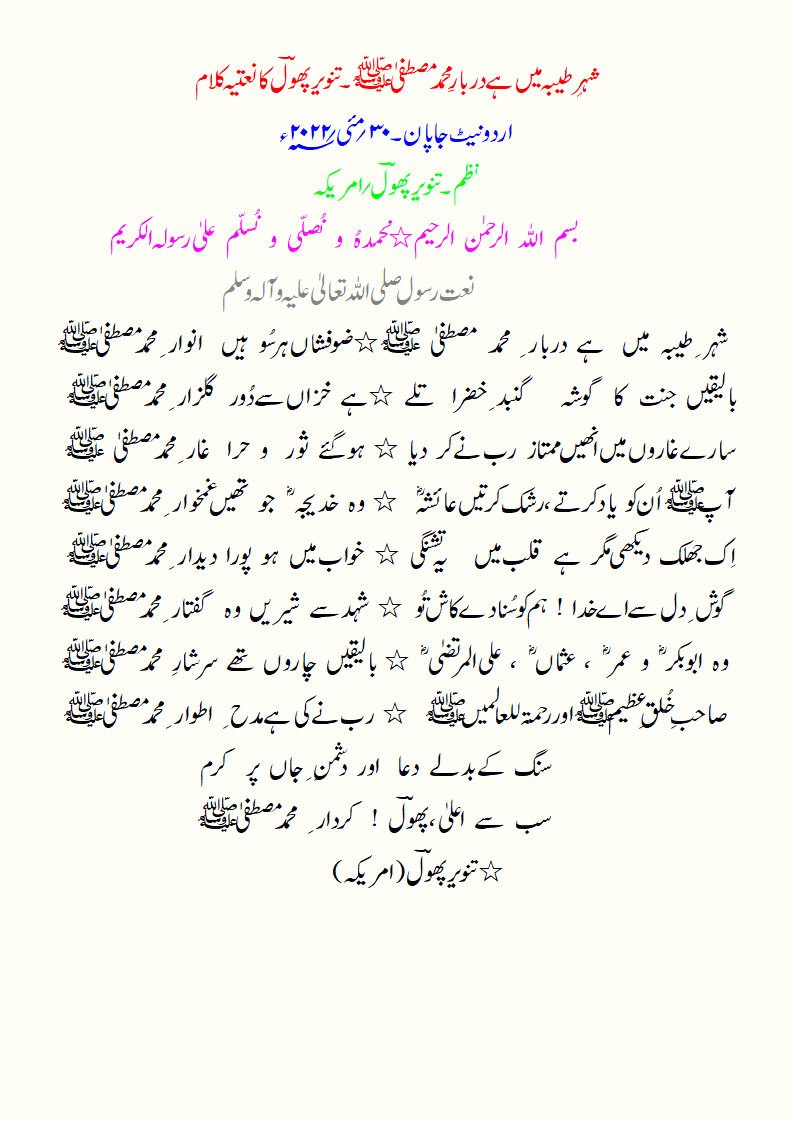 شہرِ طیبہ میں ہے دربارِ محمد مصطفیٰ ﷺ ۔ تنویر پھولؔ کا نعتیہ کلام
اردو نیٹ جاپان ۔ ۳۰ ؍ مئی ؍ ۲۰۲۲ء
نظم ۔ تنویر پھولؔ ؍ امریکہ
بسم اللہ الرحمٰن الرحیم ☆ نحمدہُ و نُصلّی و نُسلّم علیٰ رسولہ الکریم
نعت رسول صلی اللہ تعالیٰ علیہ و آلہ وسلم
شہر ِ طیبہ میں ہے دربار ِ محمد مصطفیٰ ﷺ ☆ ضوفشاں ہر سُو ہیں انوار ِ محمد مصطفیٰ ﷺ
بالیقیں جنت کا گوشہ گنبد ِ خضرا تلے ☆ ہے خزاں سے دُور گلزار ِ محمد مصطفیٰ ﷺ
سارے غاروں میں انھیں ممتاز رب نے کر دیا ☆ ہو گئے ثور و حرا غار ِ محمد مصطفیٰ ﷺ
آپ ﷺ اُن کو یاد کرتے ، رشک کرتیں عائشہؓ ☆ وہ خدیجہؓ جو تھیں غمخوار ِ محمد مصطفیٰ ﷺ
اِک جھلک دیکھی مگر ہے قلب میں یہ تشنگی ☆ خواب میں ہو پورا دیدار ِ محمد مصطفیٰ ﷺ
گوش ِ دل سے اے خدا ! ہم کو سُنا دے کاش تُو ☆ شہد سے شیریں وہ گفتار ِ محمد مصطفیٰ ﷺ
وہ ابوبکرؓ و عمرؓ ، عثماںؓ ، علی المرتضیٰؓ ☆ بالیقیں چاروں تھے سرشارِ محمد مصطفیٰ ﷺ
صاحبِ خُلقِ عظیم ﷺ اور رحمۃ للعالمیں ﷺ ☆ رب نے کی ہے مدح ِ اطوار ِ محمد مصطفیٰ ﷺ
سنگ کے بدلے دعا اور دشمن ِ جاں پر کرم
سب سے اعلیٰ ، پھولؔ ! کردار ِ محمد مصطفیٰ ﷺ
☆ تنویر پھولؔ ( امریکہ )